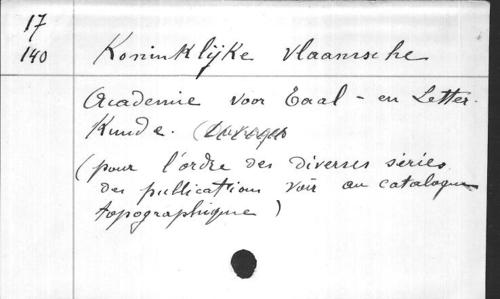 17
140 Koninklijke vlaamsche
Academie voor Taal - en Letter-
Kunde.
(pour l'ordre des diverses séries
des publications voir au catalogue
topographique)